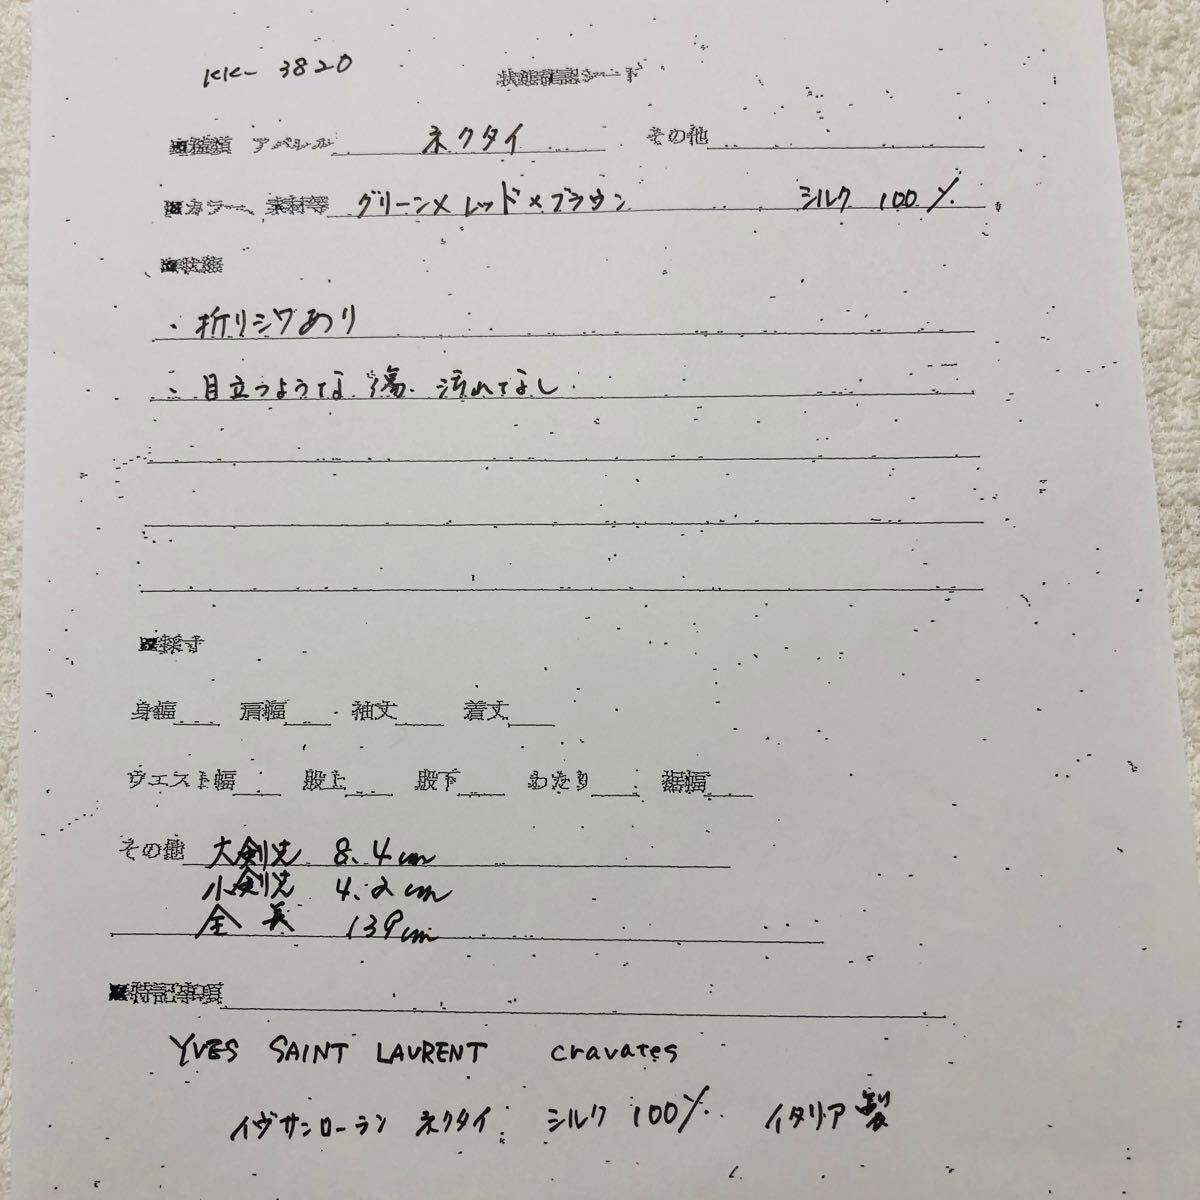 KK- 3820
状態確認シート
■種類 アパレル ネクタイ その他
■カラー、素材等 グリーン×レッド×ブラウン シルク 100%
■状態
・折りシワあり
・目立つような傷、汚れてなし
■採寸
身幅 肩幅 袖丈 着丈
ウエスト幅 股上 股下 わたり 裾幅
その他 大剣先 8.4cm
小剣先 4.2cm
全長 139cm
■特記事項
YVES SAINT LAURENT cravates
イヴサンローラン ネクタイ シルク 100% イタリア製